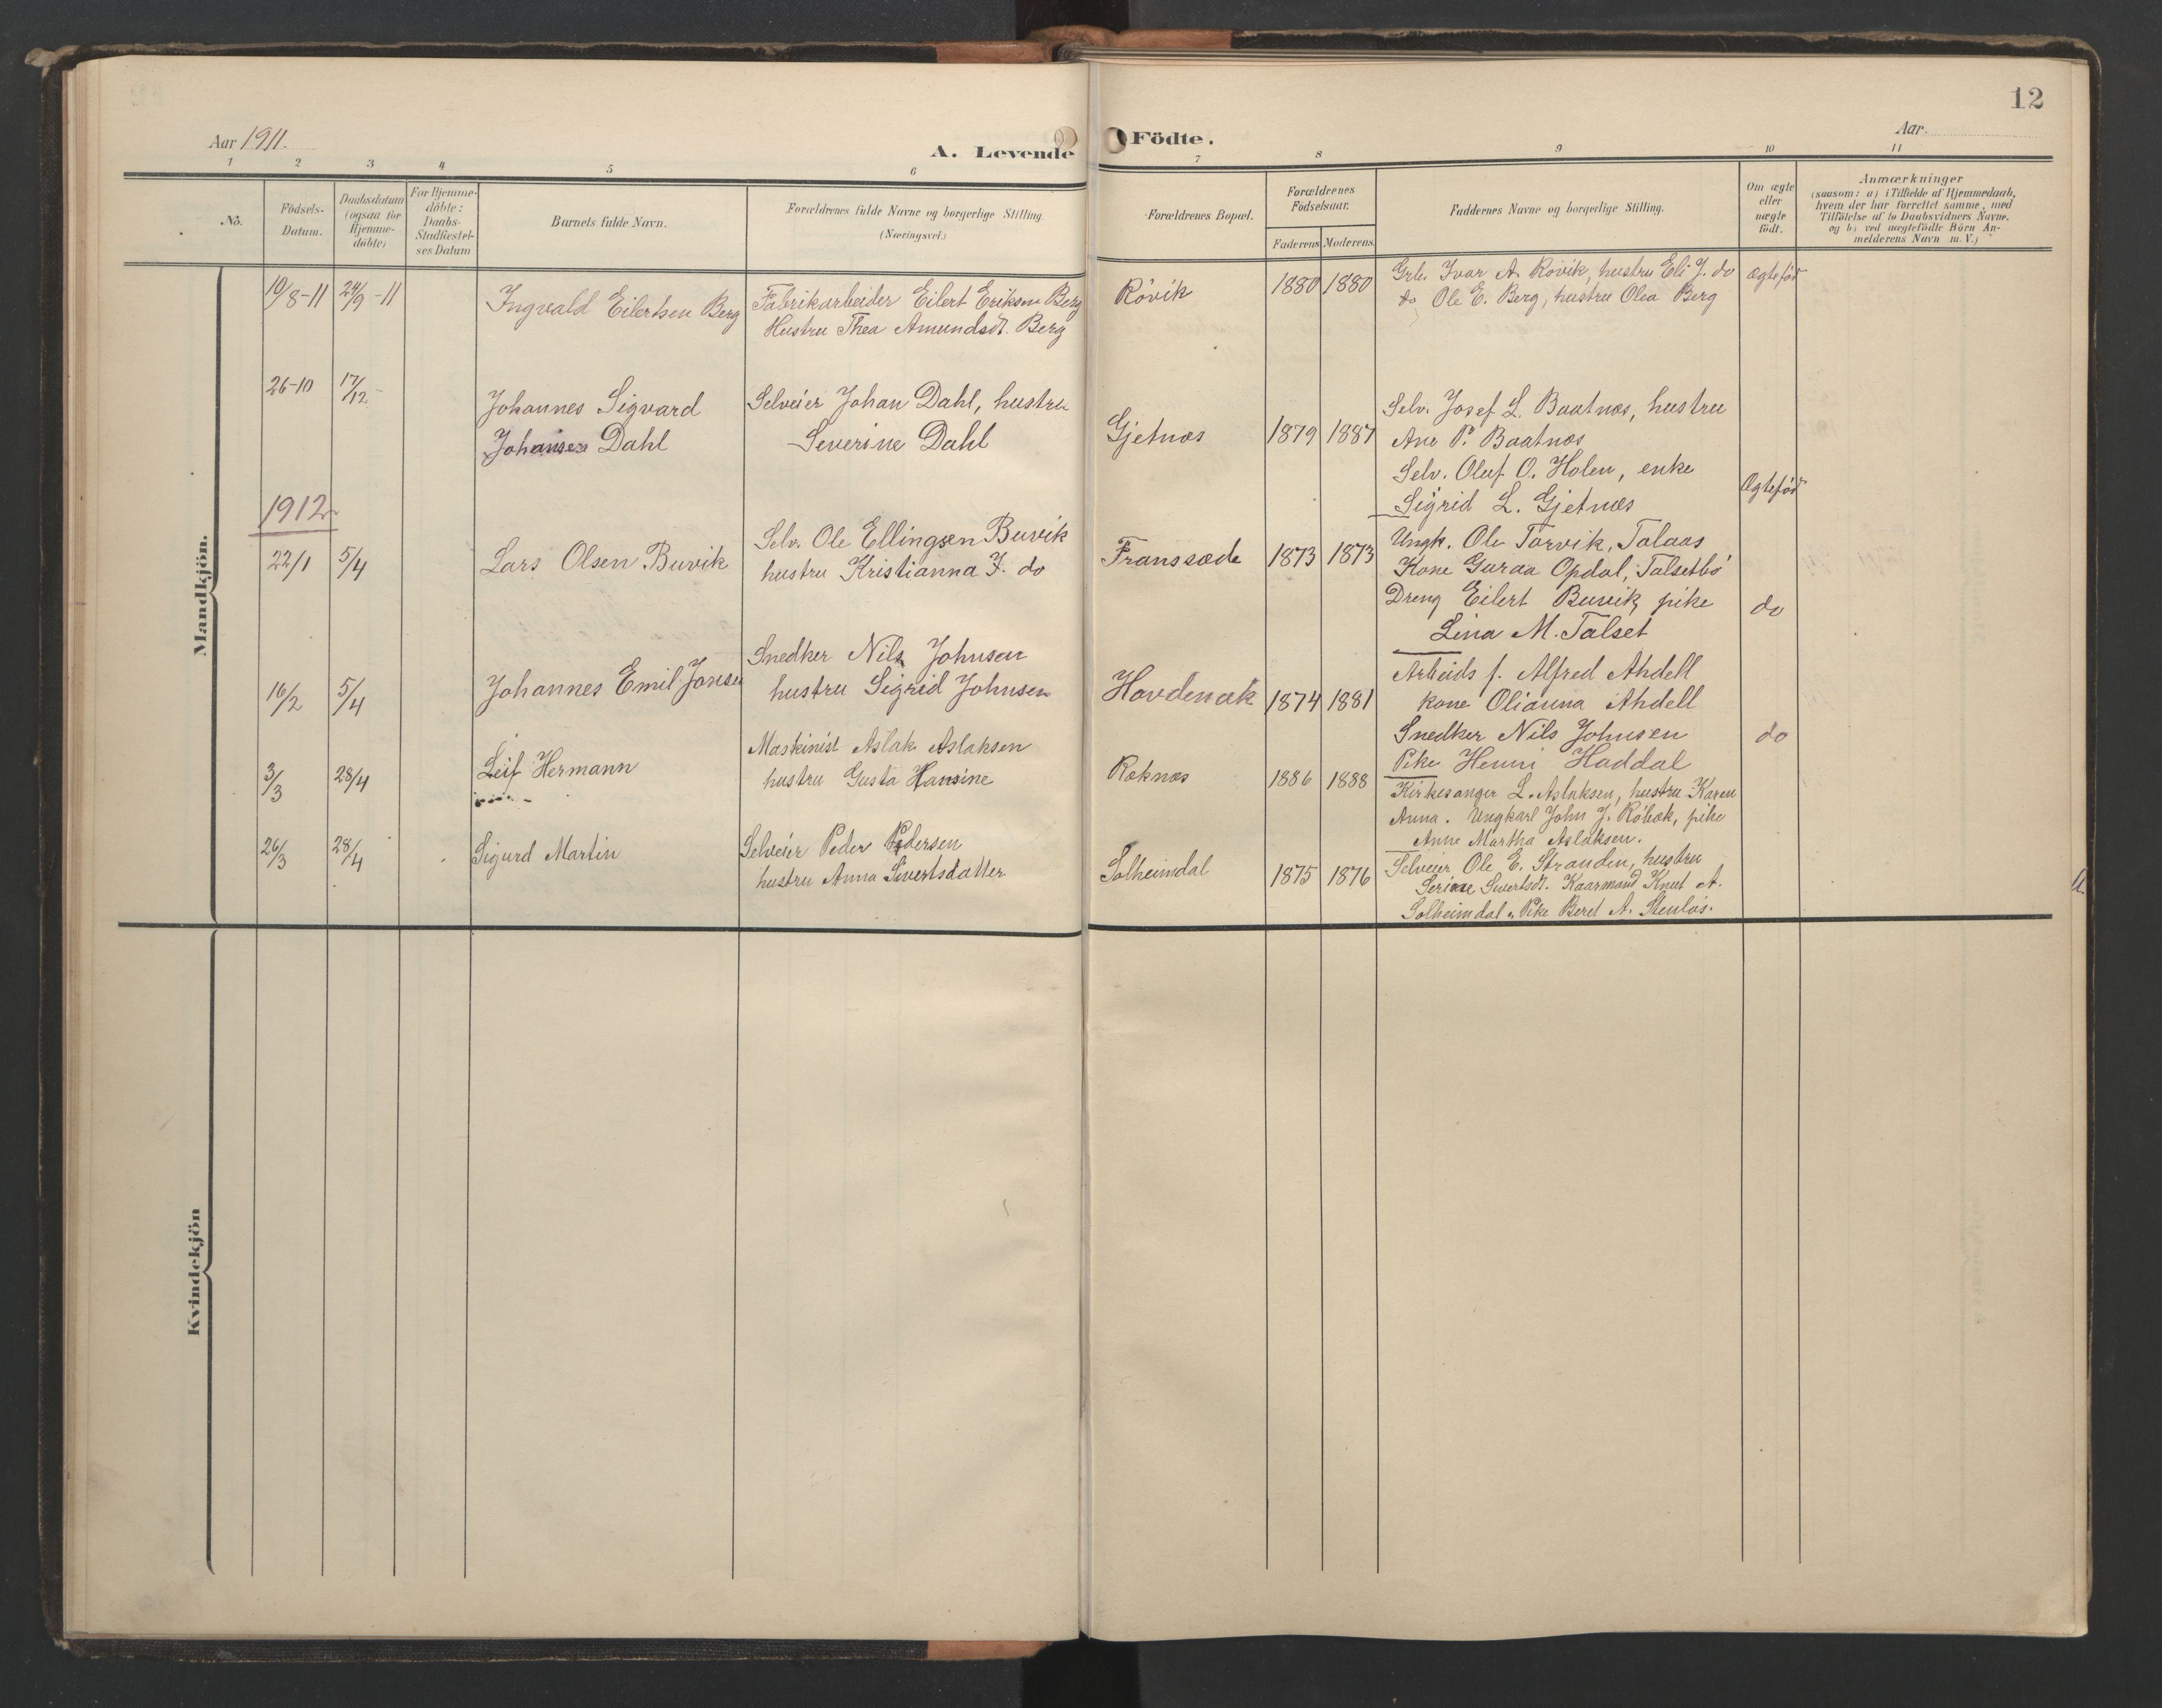 12
Aar 1911.
A. Levende Födte.
Aar.
1 2 3 4 5 6 7 8 9 10 11
No.
Födsels-Datum.
Daabsdatum (ogsaa for Hjemme-döbte)
For Hjemme-döbte: Daabs-Stadfæstel-ses Datum
Barnets fulde Navn.
Forældrenes fulde Navne og borgerlige Stilling. (Næringsvei.)
Forældrenes Bopæl.
Forældrenes Födselsaar.
Faderens Moderens
Faddernes Navne og borgerlige Stilling.
Om ægte eller uægte födt.
Anmærkninger
(saasom: a) i Tilfælde af Hjemmedaab,
hvem der har forrettet samme, med
Tilföielse af to Daabsvidners Navne.
og b) ved uægtefödte Börn An-
melderens Navn m. V.)
Mandkjön.
10/8-11 24/9-11 Ingvald Eilertsen Berg
Fabrikarbeider Eilert Eriksen Berg
Hustru Thea Amundsdt. Berg
Rövik 1880 1880
Grb. Ivar A. Rövik, hustru Eli J. do
do Ole E. Berg, hustru Olea Berg
Ægtefød
26-10 17/12
Johannes Sigvard
Johansen Dahl
Selveier Johan Dahl, hustru
Severine Dahl
Gjetnæs 1879 1887
Selv. Josef L. Baatnæs, hustru
Ane P. Baatnæs
Selv. Oluf O. Holen, enke
Sigrid L. Gjetnæs
Ægtefød
1912
22/1 5/4 Lars Olsen Buvik
Selv. Ole Ellingsen Buvik
hustru Kristianna I. do
Franssæde 1873 1873
Ungk. Ole Torvik, Talaas
Kone Guraa Opdal, Talsetbö
Dreng Eilert Buvik, pike
Lina M. Talset
do
16/2 5/4 Johannes Emil Jonsen
Snedker Nils Johnsen
hustru Sigrid Johnsen
Havdenak 1874 1881
Arbeids f. Alfred Ahdell
kone Olianna Ahdell
Snedker Nils Johnsen
Pike Henni Haddal
do
3/3 28/4 Leif Hermann
Maskinist Aslak Aslaksen
hustru Gusta Hansine
Røknæs 1886 1888
Kirkesanger L. Aslaksen, hustru Karen
Anna. Ungkarl John J. Röbæk, pike
Anne Martha Aslaksen.
26/3 28/4 Sigurd Martin
Selveier Peder Pedersen
hustru Anna Sivertsdatter
Solheimdal 1875 1876
Selveier Ole E. Stranden, hustru
Serine Sivertsdt. Kaarmand Knut A.
Solheimdal, Pike Beret A. Stenlös.
Kvindekjön